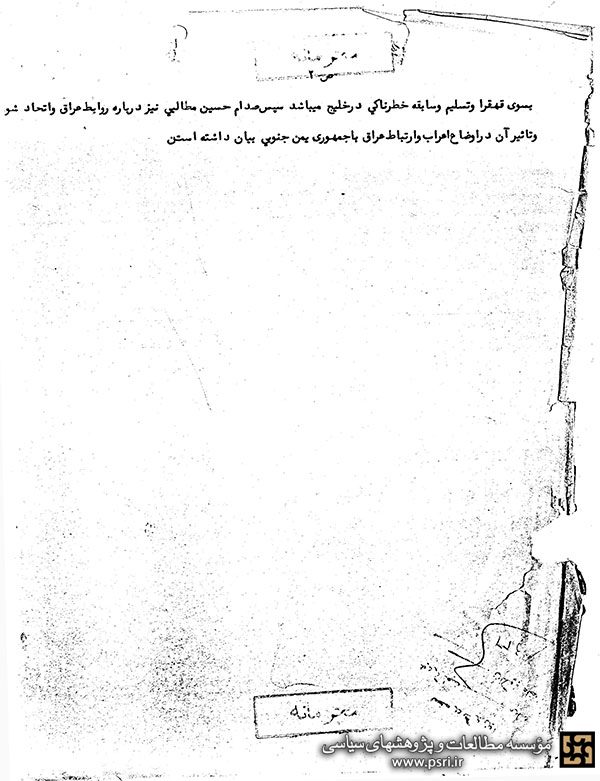 محرمانه
ص ۲
بسوی قهقرا وتسلیم وسابقه خطرناکي درخلیج میباشد سپس صدام حسین مطالبي نیز درباره روابط عراق واتحاد شو
وتاثیر آن دراوضاع اعراب وارتباط عراق باجمهوری یمن جنوبي بیان داشته است
محرمانه
مؤسسه مطالعات و پژوهشهای سیاسی
www.psri.ir